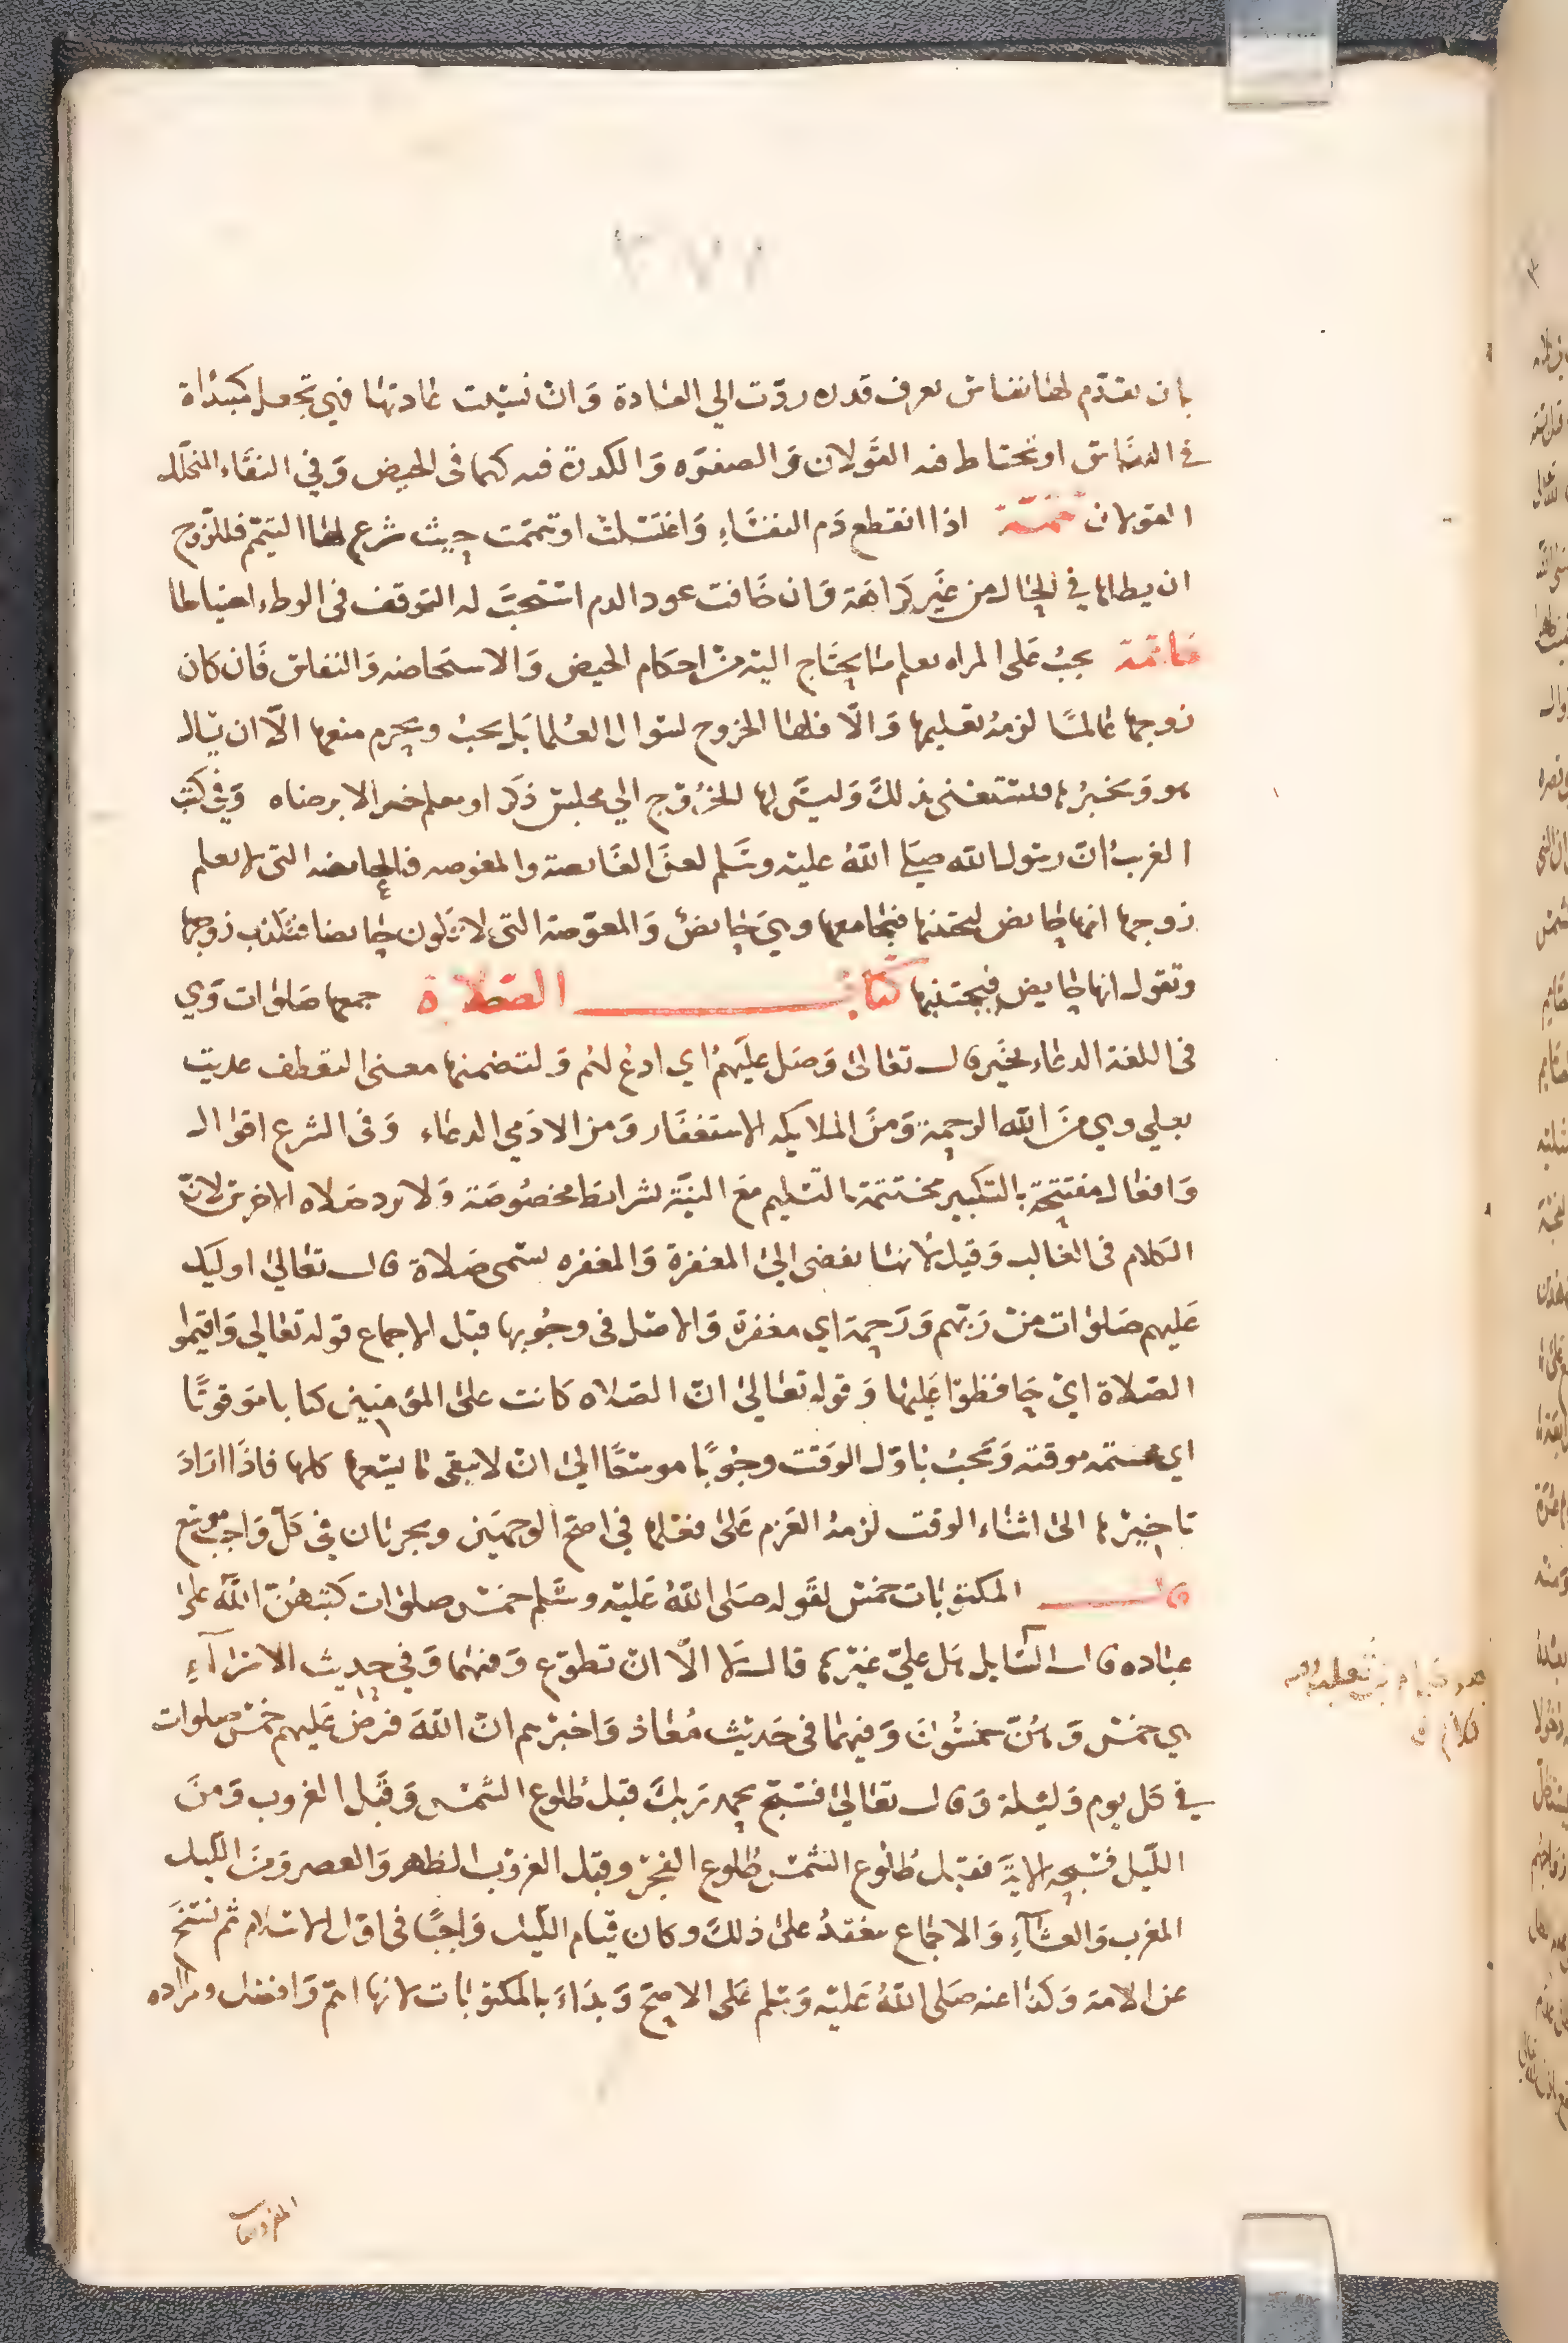 بان يقدم لها نفاس يعرف قدره ردّت الي العادة وَان نسيت عادتها فهي تجعل كمبتداة
في النفاس او تحتاط فيه القولان وَالصفرة وَالكدرة فيه كهما فى الحيض وَفي النقاء المتخلل
القولان تتمّة اذا انقطع دَم النفسَاءِ وَاغتسَلت او تيممت حيث شرع لها التيمّم فللزّوج
ان يطاها في الحال من غَير كَراهَة وَان خافت عود الدم استحبّ له التوقف فى الوطء احتياطا
خاتمة يجبُ عَلى المراه تعلم ما يحتَاج اليه منْ احكام الحيض وَالاستحاضه وَالنفاس فَان كان
زوجها عالمًا لزمهُ تعليمها وَالّا فلها الخروج لسوال العُلما بَل يجبُ ويحرم منعها الّا ان يسال
هو وَيخبرُها فتستغنى بذلكَ وَليسَ لها الخرُوج الي مجلس ذكَر او تعلم خير الا برضاه وَفي كتب
الغريبُ انّ رسُول الله صلي اللهُ عليه وسَلم لعنَ الغَايصة والمغوصه فالغايصه التى لا تعلم
زوجها انها حايض ليجتنبها فيجامعها وهي حَايضٌ وَالمغوّصة التى لا تكون حَايضا فتكذب زوجها
وتقول انها حايض فيجتنبها كتابُ الصّلاة جمعها صَلوات وَهي
فى اللغة الدعاء بخَير قال تعالى وَصل علَيهمْ اي ادعُ لهُم وَلتضمنها معنى التعطف عديت
بعلي وهي منَ الله الرحمة وَمنَ الملايكه الاستغفَار وَمن الادَمي الدعَاء وَفى الشرع اقوال
وَافعال مفتتحة بالتكبير مختتمة بالتسليم مَع النيّة بشرايط مخصُوصَة وَلا يرد صَلاه الاخرس لانّ
الكلام فى الغالب وَقيل لانها تفضى الى المغفرة وَالمغفره تسمى صَلاة قال تعاليٰ اوليك
عَليهم صَلوات منْ رَبّهم وَرَحمة اي مغفرة وَالاصل فى وجُوبها قبل الاجماع قوله تعالي وَاقيموا
الصّلاة ايْ حَافظوا عَليها وَقوله تعاليٰ انّ الصّلاه كانت علىٰ المؤمنين كتابا موَقوتًا
اي محتمه موقته وَتجبُ باوّل الوَقت وجوُبًا موسّعًا اليٰ انْ لا يبقى ما يسَعها كلها فاذَا ارَادَ
تاخيرْها الىٰ اثناء الوقت لزمهُ العَزم عَلىٰ فعْلها في اصحّ الوجهَين ويجريان فى كلّ وَاجب موسّع
قال المكتوبات خمسْ لقَوله صَلى اللهُ عَليه وسَّلم خمسْ صلوات كتبَهُنّ اللهُ علىٰ
عبَاده قال السّايل هَل عليّ غيرْها قال لا الّا انْ تطوّع وَمنها وَفي حديث الاسْرآءِ
هي خمسْ وَهُنّ خمسُونَ وَفيهَا فى حَديث مُعَاذ وَاخبرْهم انّ اللهَ فرضَ عَليهم خمسْ صلوات
في كل يوم وَليْلة وَقال تعَالى فسَبّح بحمد رَبكَ قبلَ طلوع الشمس وَقَبل الغروب وَمنَ
اللّيل فسَبحه الايَة فقبل طُلوع الشّمس طُلوع الفجرْ وقبل الغروب الظهر وَالعصر وَمنَ اللّيل
المغرب وَالعشَآءِ وَالاجمَاع منعَقدُ علىٰ ذلكَ وكان قيَام اللّيل وَاجبًا فى اوّل الاسْلام ثم نُسخَ
عن الامة وَكذا عنه صَلى اللهُ عَليه وَسلم عَلى الاصحّ وَبدَاءَ بالمكتوبَات لانها اهمّ وَافضل ومرَاده
المفروضات